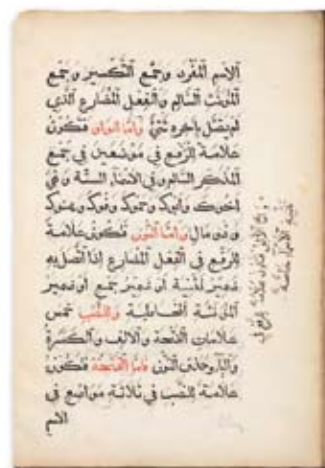 الاسم المفرد وجمع التكسير وجمع
المؤنث السالم والفعل المضارع الذي
لم يتصل بآخره شيء وأما الواو فتكون
علامة للرفع في موضعين في جمع
المذكر السالم وفي الاسماء الستة وهي
اخوك وابوك وحموك وفوك وهنوك
وذو مال وأما النون فتكون علامة
للرفع في الفعل المضارع إذا اتصل به
ضمير تثنية أو ضمير جمع أو ضمير
المؤنثة المخاطبة وللنصب خمس
علامات الفتحة والالف والكسرة
والياء وحذف النون فأما الفتحة فتكون
علامة للنصب في ثلاثة مواضع في
الاسم
وأما الالف فتكون علامة للرفع في
تثنية الاسماء خاصة